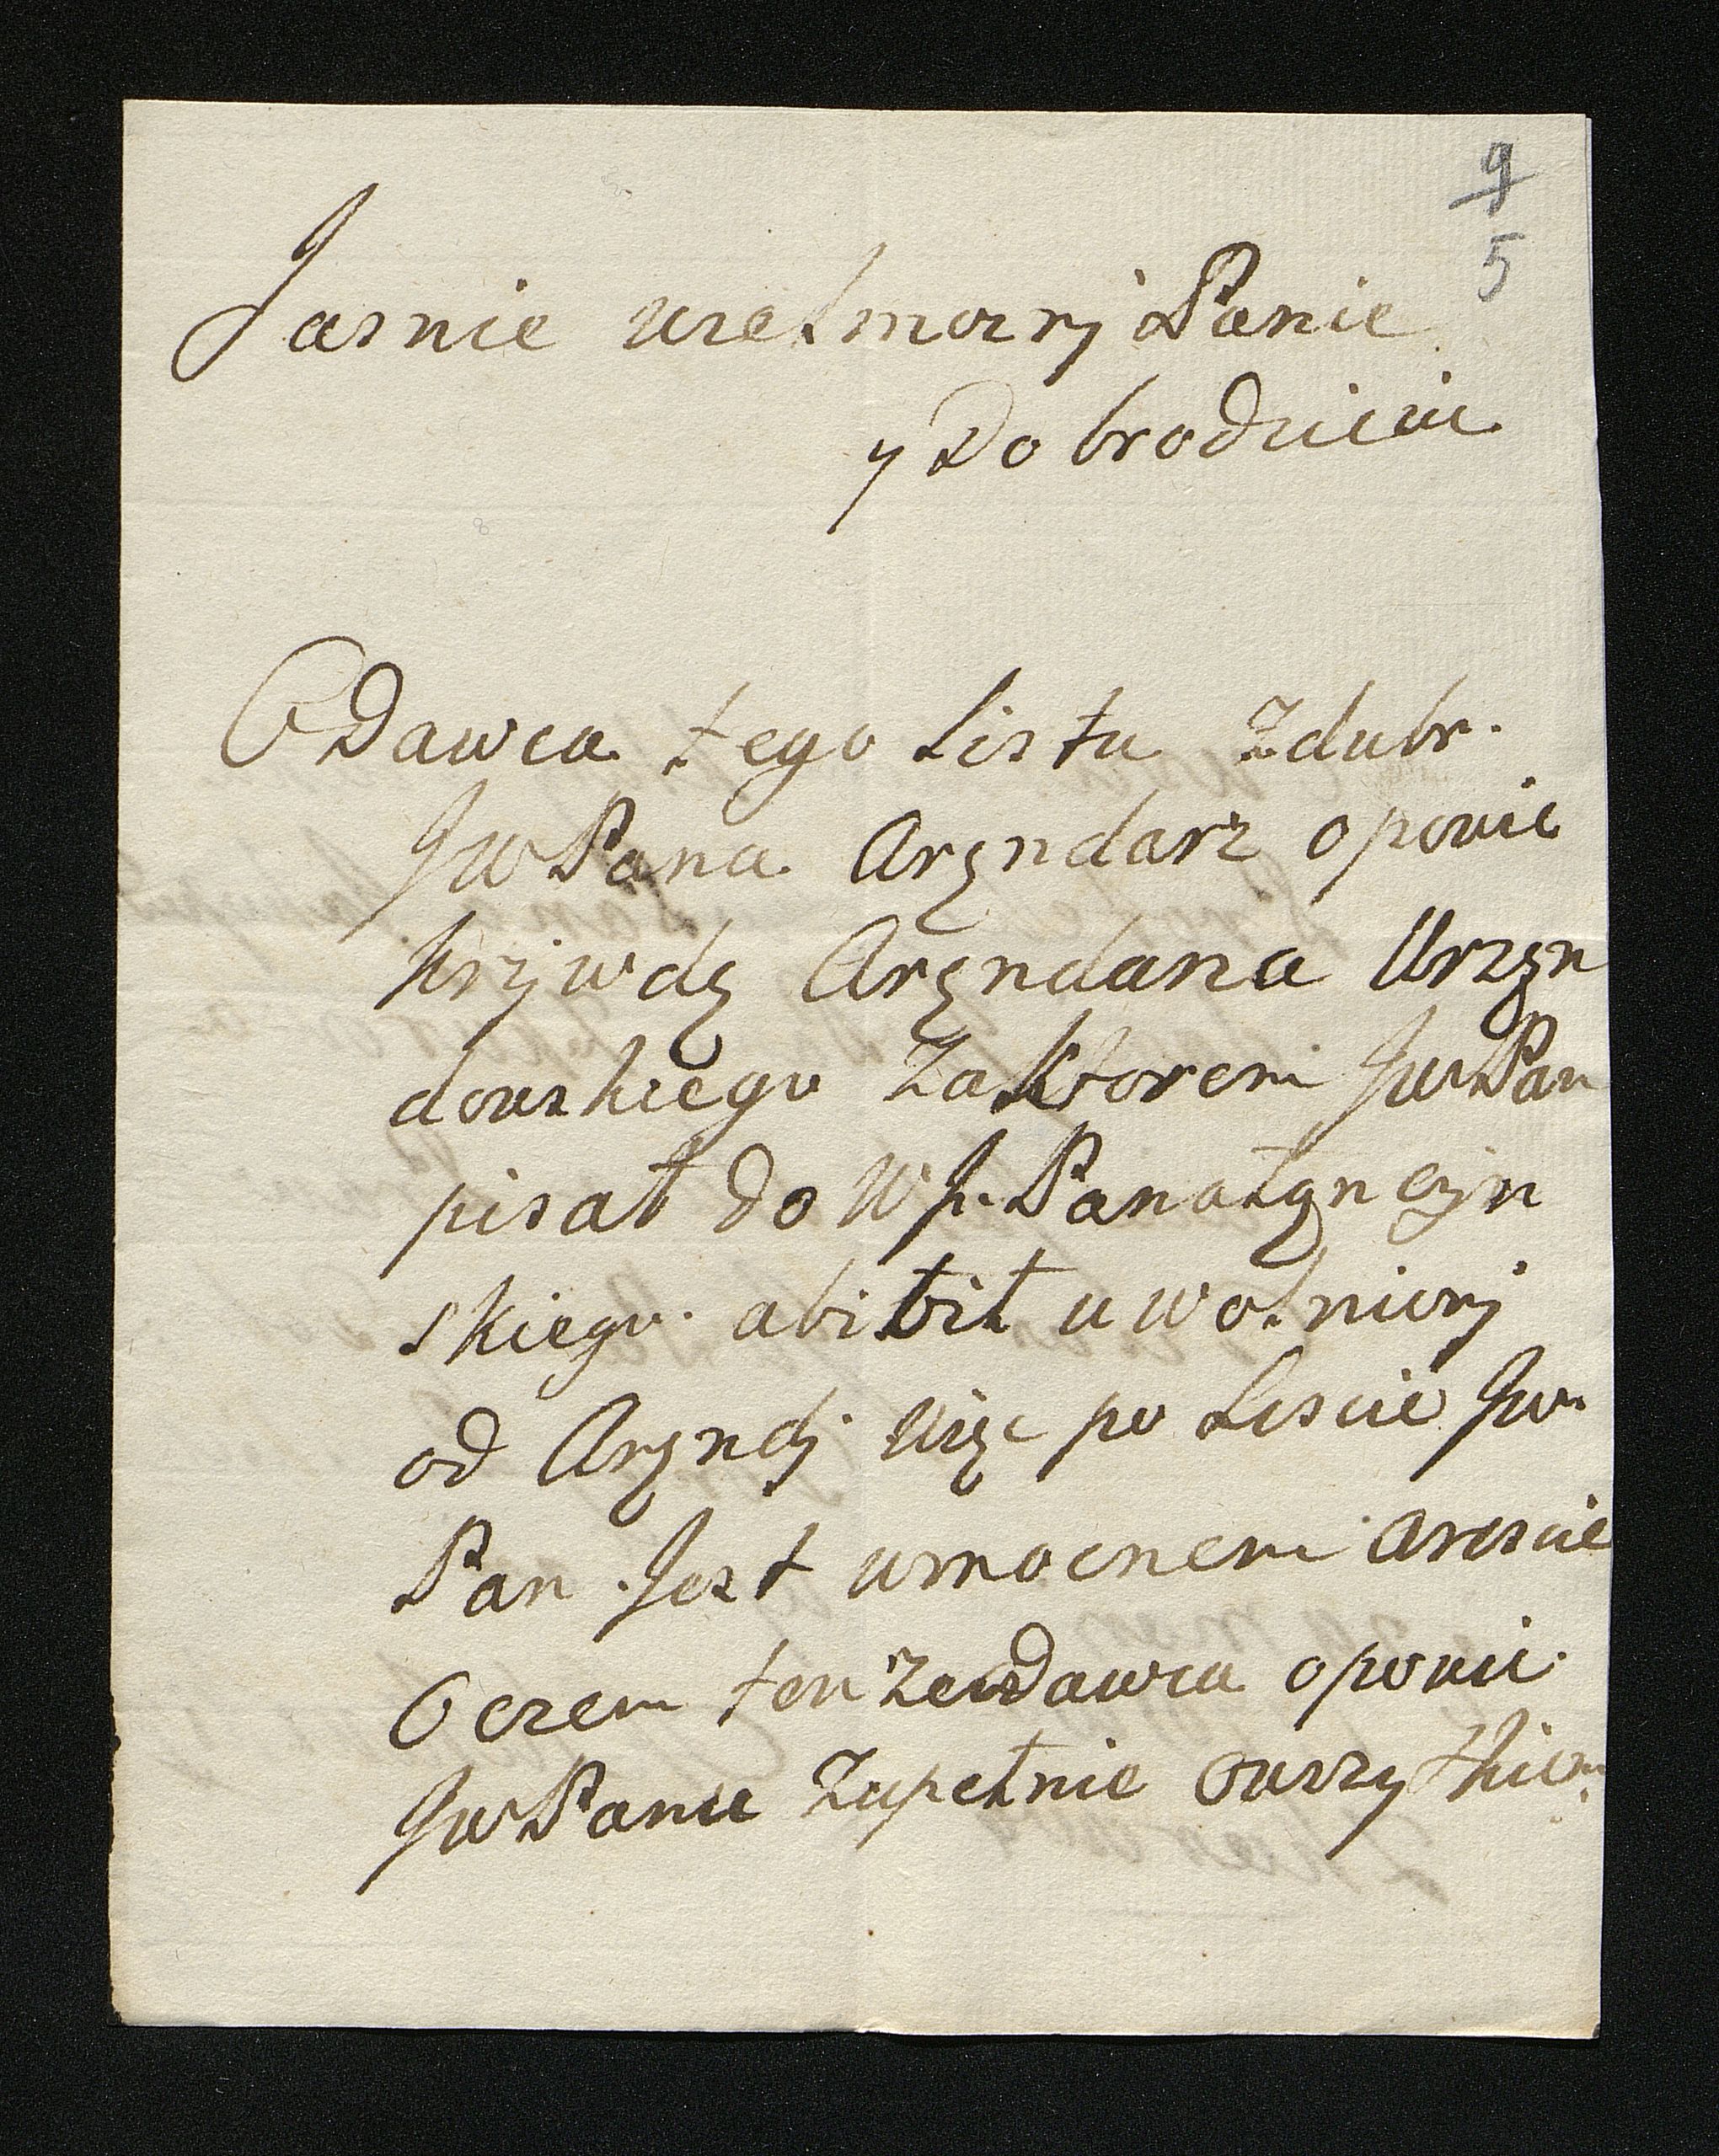 9
5
Jasnie wielmozny Panie
y Dobrodzieiu
Odawca tego Listu Zdubr.
JW Pana Aręndarz opowie
krzywdę Aręndarza Urzęn
dowskiego Zaktorem JWPan
pisał do W. J. Pana Łęnczyn
skiego. abi bił uwolniony
od Aręndy więc po Liscie JW.
Pan Jest wmocnem Arescie
Oczem tenże oddawca opowie.
JWPanu Zupełnie Owszytkiem